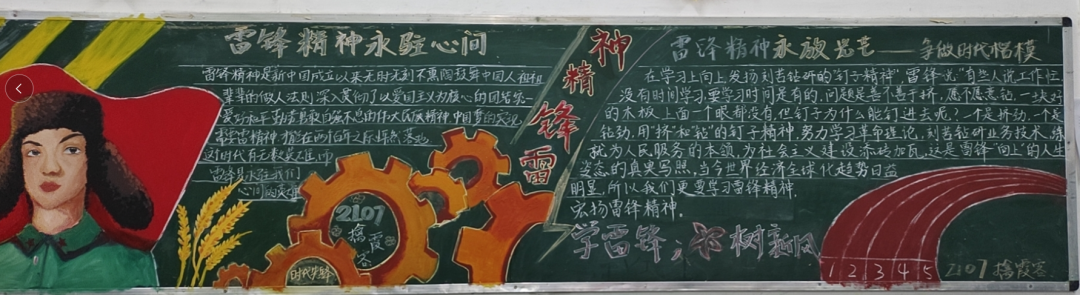 雷锋精神永驻心间
雷锋精神是新中国成立以来无时无刻不熏陶鼓舞中国人祖祖
辈辈的做人法则深入贯彻了以爱国主义为核心的团结统一
爱好和平勤劳勇敢自强不息伟大民族精神中国梦的实现
需要雷精神
这时代有无数英雄
雷锋是
心间的
2107
擒霞客
时代先锋
神
精
锋
雷
雷锋精神永放光芒——争做时代楷模
在学习上向上发扬刻苦钻研的"钉子精神",雷锋说"有些人说工作忙
没有时间学习要学习时间是有的,问题是善不善于挤,愿不愿意钻,一块好
的木板上面一个眼都没有,但钉子为什么能钉进去呢?一个是挤劲,一个是
钻劲,用"挤"和"钻"的钉子精神,努力学习革命理论,刻苦钻研业务技术,练
就为人民服务的本领,为社会主义建设添砖加瓦,这是雷锋"向上"的人生
姿态的真实写照,当今世界经济全球化趋势日益
明显,所以我们更要学习雷锋精神,
宏扬雷锋精神。
学雷锋;树新风
1 2 3 4 5
2107 擒霞客